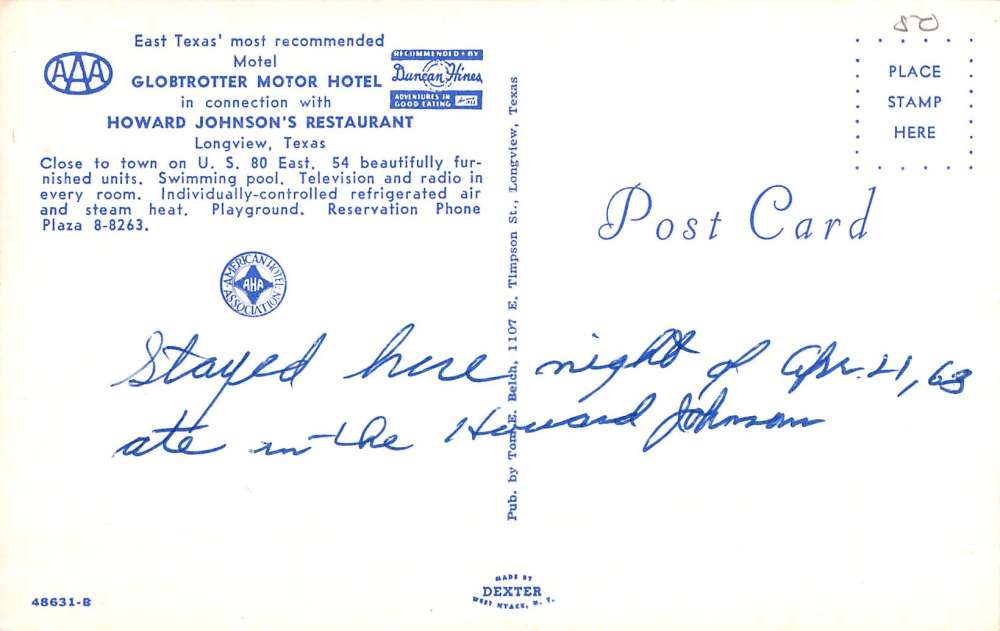 80
East Texas' most recommended
Motel
GLOBTROTTER MOTOR HOTEL
in connection with
HOWARD JOHNSON'S RESTAURANT
Longview, Texas
Close to town on U. S. 80 East. 54 beautifully fur-
nished units. Swimming pool. Television and radio in
every room. Individually-controlled refrigerated air
and steam heat. Playground. Reservation Phone
Plaza 8-8263.
AAA
RECOMMENDED BY
Duncan Hines
ADVENTURES IN
GOOD EATING
AMERICAN HOTEL
AHA
ASSOCIATION
Pub. by Tom E. Belch, 1107 E. Timpson St., Longview, Texas
PLACE
STAMP
HERE
Post Card
Stayed here night of Apr. 21, 63
ate in the Howard Johnson
48631-B
MADE BY
DEXTER
WEST NYACK, N. Y.